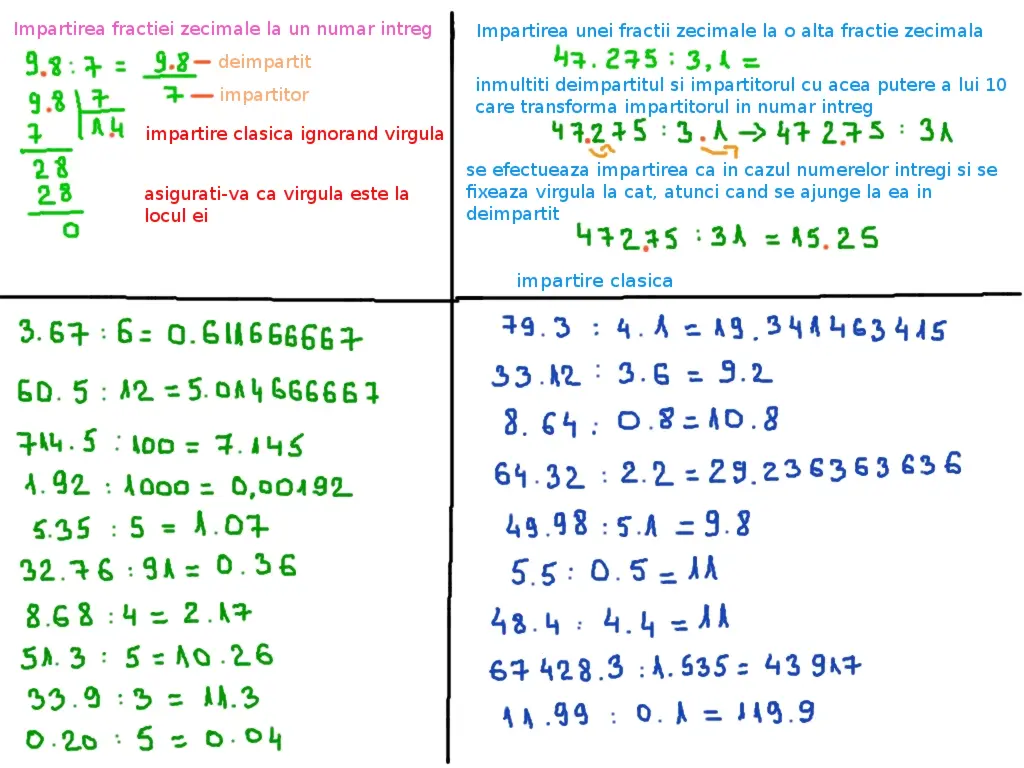 Impartirea fractiei zecimale la un numar intreg
9.8 : 7 = 9.8 — deimpartit
7 — impartitor
9.8 7
7 1.4
impartire clasica ignorand virgula
28
28
0
asigurati-va ca virgula este la
locul ei
Impartirea unei fractii zecimale la o alta fractie zecimala
47.275 : 3,1 =
inmultiti deimpartitul si impartitorul cu acea putere a lui 10
care transforma impartitorul in numar intreg
47.275 : 3.1 → 472.75 : 31
se efectueaza impartirea ca in cazul numerelor intregi si se
fixeaza virgula la cat, atunci cand se ajunge la ea in
deimpartit
472.75 : 31 = 15.25
impartire clasica
3.67 : 6 = 0.611666667
60.5 : 12 = 5.014666667
714.5 : 100 = 7.145
1.92 : 1000 = 0,00192
5.35 : 5 = 1.07
32.76 : 91 = 0.36
8.68 : 4 = 2.17
51.3 : 5 = 10.26
33.9 : 3 = 11.3
0.20 : 5 = 0.04
79.3 : 4.1 = 19.341463415
33.12 : 3.6 = 9.2
8.64 : 0.8 = 10.8
64.32 : 2.2 = 29.236363636
49.98 : 5.1 = 9.8
5.5 : 0.5 = 11
48.4 : 4.4 = 11
67 428.3 : 1.535 = 43 917
11.99 : 0.1 = 119.9